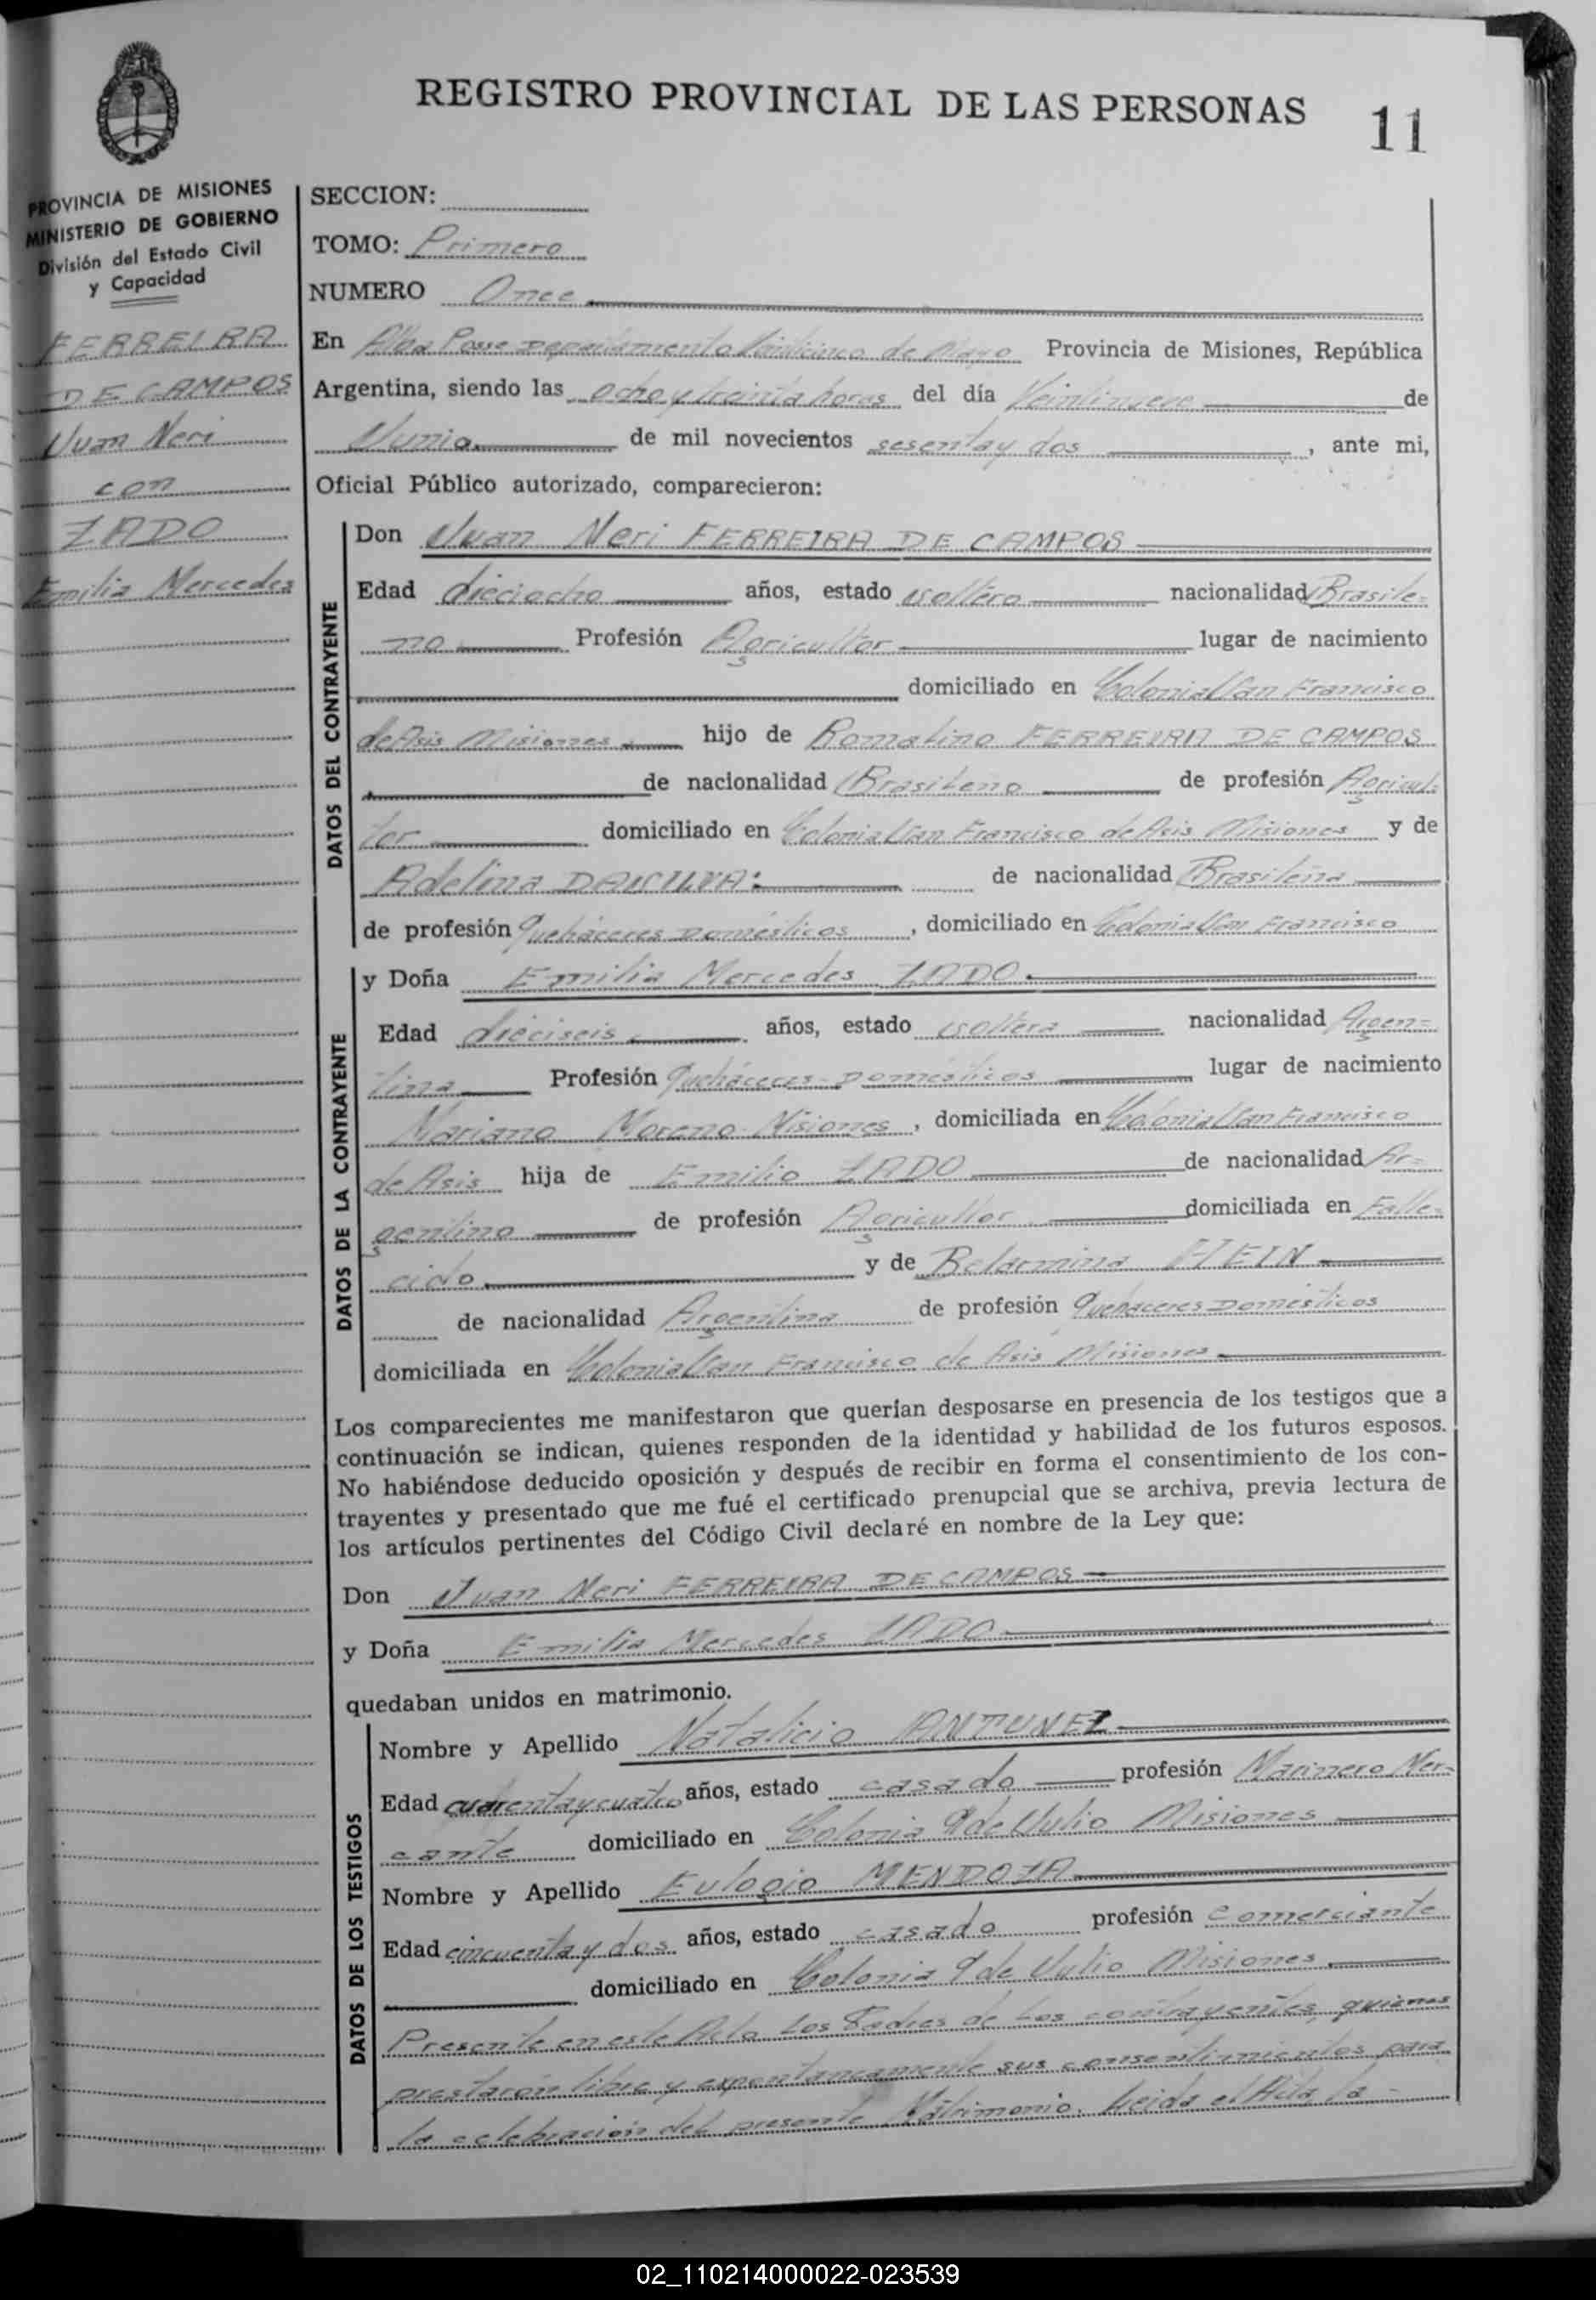 REGISTRO PROVINCIAL DE LAS PERSONAS
11
PROVINCIA DE MISIONES
MINISTERIO DE GOBIERNO
División del Estado Civil
y Capacidad
FERREIRA
DE CAMPOS
Juan Neri
con
ZADO
Emilia Mercedes
SECCION:
TOMO: Primero
NUMERO Once
En Alba Posse Departamento Veinticinco de Mayo Provincia de Misiones, República
Argentina, siendo las ocho y treinta horas del día Veintinueve de
Junio de mil novecientos sesenta y dos, ante mi,
Oficial Público autorizado, comparecieron:
DATOS DEL CONTRAYENTE
Don Juan Neri FERREIRA DE CAMPOS
Edad dieciocho años, estado soltero nacionalidad Brasile-
no Profesión Agricultor lugar de nacimiento
domiciliado en Colonia San Francisco
de Asis Misiones hijo de Romalino FERREIRA DE CAMPOS
de nacionalidad Brasileno de profesión Agricul-
tor domiciliado en Colonia San Francisco de Asis Misiones y de
Adelina DA SILVA de nacionalidad Brasileña
de profesión Quehaceres Domésticos, domiciliado en Colonia San Francisco
DATOS DE LA CONTRAYENTE
y Doña Emilia Mercedes ZADO
Edad dieciseis años, estado soltera nacionalidad Argen-
tina Profesión Quehaceres Domesticos lugar de nacimiento
Mariano Moreno Misiones, domiciliada en Colonia San Francisco
de Asis hija de Emilio ZADO de nacionalidad Ar-
gentino de profesión Agricultor domiciliada en Falle-
cido y de Belarmina HEIN
de nacionalidad Argentina de profesión Quehaceres Domesticos
domiciliada en Colonia San Francisco de Asis Misiones
Los comparecientes me manifestaron que querían desposarse en presencia de los testigos que a
continuación se indican, quienes responden de la identidad y habilidad de los futuros esposos.
No habiéndose deducido oposición y después de recibir en forma el consentimiento de los con-
trayentes y presentado que me fué el certificado prenupcial que se archiva, previa lectura de
los artículos pertinentes del Código Civil declaré en nombre de la Ley que:
Don Juan Neri FERREIRA DE CAMPOS
y Doña Emilia Mercedes ZADO
quedaban unidos en matrimonio.
DATOS DE LOS TESTIGOS
Nombre y Apellido Natalicio ANTUNEZ
Edad cuarenta y cuatro años, estado casado profesión Marinero Mer-
cante domiciliado en Colonia 9 de Julio Misiones
Nombre y Apellido Eulogio MENDOZA
Edad cincuenta y dos años, estado casado profesión Comerciante
domiciliado en Colonia 9 de Julio Misiones
Presente en este Acta Los Padres de Los contrayentes, quienes
prestaron libre y expontaneamente sus consentimientos para
la celebración del presente Matrimonio. Leida el Acta, la
02_110214000022-023539